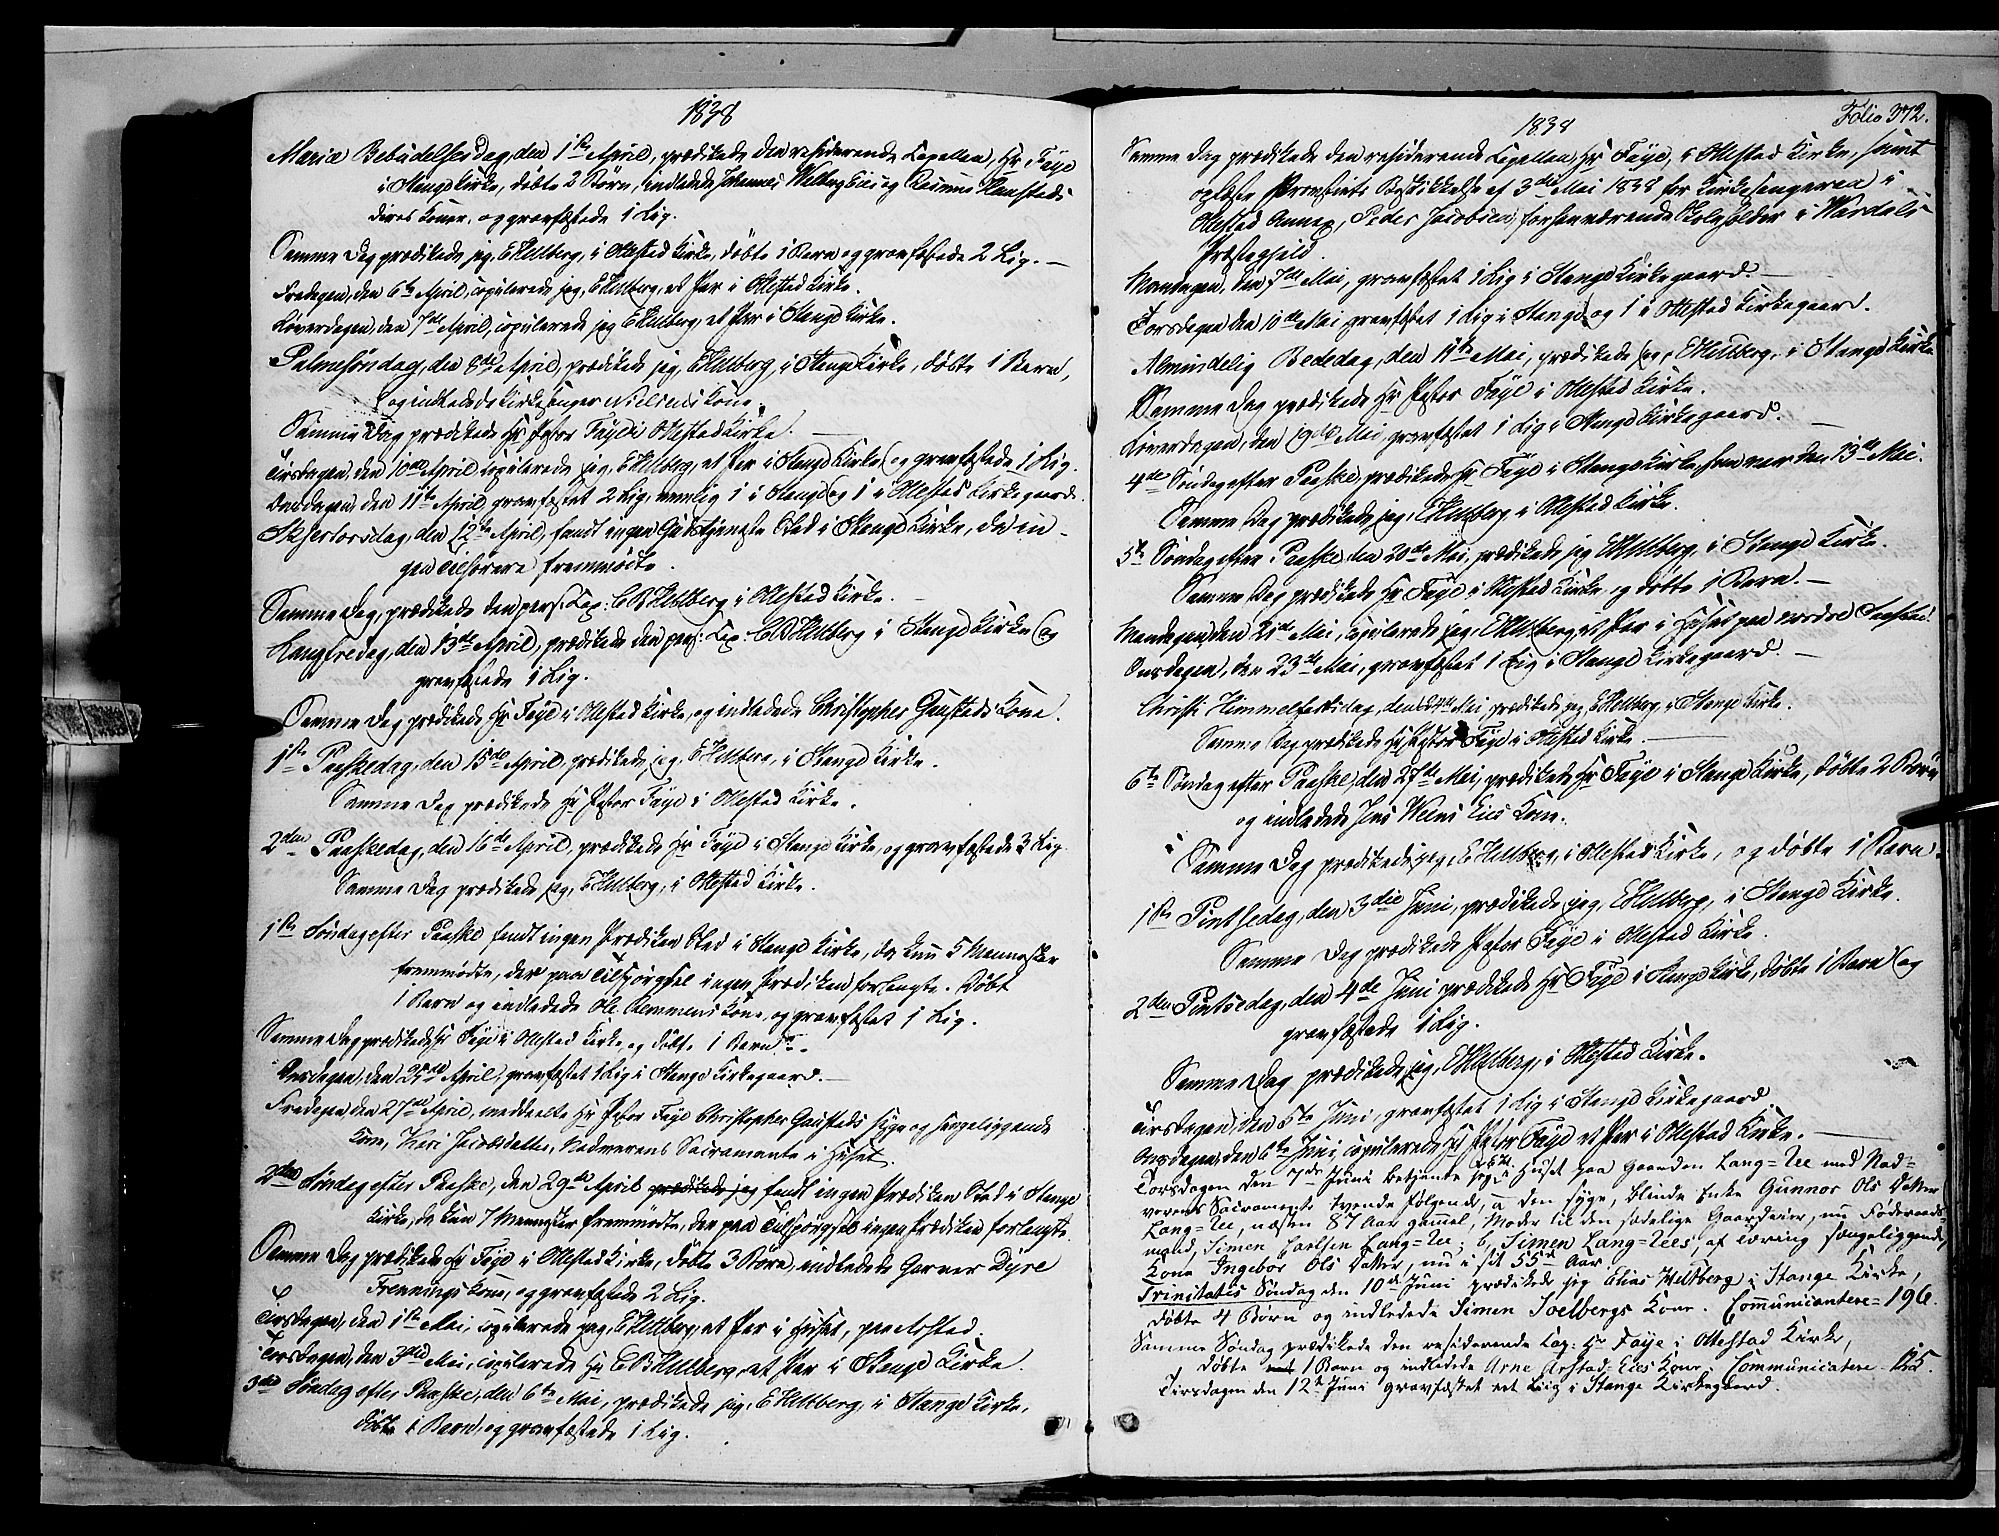 1838
Mariæ Bebudelsesdag, den 1ste April, prædikede den residerende Capellan, Hr Faye
i Stange Kirke, døbte 2 Børn, indledede Johannes
Koner, og gravfæstede 1 Lig.
Samme Dag prædikede jeg, EHeltberg, i Ottestad Kirke, døbte 1 Barn og gravfæstede 2 Lig. —
Fredagen, den 6te April, copulerede jeg, EHeltberg, et Par i Ottestad Kirke.
Løverdagen, den 7de April, copulerede jeg EHeltberg, et Par i Stange Kirke.
Palmesøndag, den 8de April, prædikede jeg, EHeltberg, i Stange Kirke, døbte 1 Barn,
og indledede Kirkesanger Nielsens Kone.
Samme Dag prædikede Hr Pastor Faye i Ottestad Kirke.
Tirsdagen, den 10de April copulerede jeg, EHeltberg, et Par i Stange Kirke og gravfæstede 1 Lig.
Onsdagen, den 11te April, gravfæstet 2 Lig, nemlig 1 i Stange og 1 i Ottestad Kirkegaard.
Skjertorsdag, den 12te April, fandt ingen Gudstjeneste Sted i Stange Kirke, da in-
gen Tilhørere fremmødte.
Samme Dag, prædikede den pers: Cap: CBHeltberg i Ottestad Kirke.
Langfredag, den 13de April, prædikede den pers: Cap: CBHeltberg i Stange Kirke og
gravfæstede 1 Lig.
Samme Dag prædikede Hr Faye i Ottestad Kirke, og indledede Christopher Gaustads Kone.
1ste Paaskedag, den 15de April, prædikede jeg, EHeltberg, i Stange Kirke.
Samme Dag prædikede Hr Pastor Faye i Ottestad Kirke.
2den Paaskedag, den 16de April, prædikede Hr Faye i Stange Kirke, og gravfæstede 3 Lig.
Samme Dag prædikede jeg, EHeltberg, i Ottestad Kirke.
1ste Søndag efter Paaske fandt ingen Prædiken Sted i Stange Kirke, da kun 5 Mennesker
fremmødte, der paa Tilspørgsel ingen Prædiken forlangte. Døbt
1 Barn og indledede Ole Kone, og gravfæstet 1 Lig.
Samme Dag prædikede Hr Faye i Ottestad Kirke, og døbte 1 Barn. —
Onsdagen, den 25de April, gravfæstet 1 Lig i Stange Kirkegaard. —
Fredagen, den 27de April, meddeelte Hr Pastor Faye Christopher Gaustads syge og sengeliggende
Kone, Nadverens Sacramente i Huset.
2den Søndag efter Paaske, den 29de April prædikede jeg fandt ingen Prædiken Sted i Stange
Kirke, da kun 7 Mennesker fremmødte, der paa Tilspørgsel ingen Prædiken forlangte.
Samme Dag prædikede Hr Faye i Ottestad Kirke, døbte 3 Børn, indledede Garver Dyre
Kone, og gravfæstede 2 Lig.
Tirsdagen, den 1ste Mai, copulerede jeg, EHeltberg, et Par i Huset, paa Arstad.
Torsdagen, den 3die Mai, copulerede Hr CBHeltberg, et Par i Stange Kirke.
3die Søndag efter Paaske, den 6te Mai, prædikede jeg, EHeltberg, i Stange Kirke,
døbte 1 Barn, og gravfæstede 1 Lig.
1838
Folio 372.
Samme Dag prædikede den residerende Capellan, Hr Faye, i Ottestad Kirke, samt
oplæste Provstiets Beskikkelse af 3die Mai 1838 for Kirkesangeren i
Ottestad Annex, Peder Jacobsen, forhenværende Skoleholder i Wardals
Præstegjeld.
Mandagen, den 7de Mai, gravfæstet 1 Lig i Stange Kirkegaard. —
Torsdagen den 10de Mai gravfæstet 1 Lig i Stange og 1 i Ottestad Kirkegaard.
Almindelig Bededag, den 11te Mai, prædikede jeg, EHeltberg, i Stange Kirke
Samme Dag prædikede Hr Pastor Faye i Ottestad Kirke.
Løverdagen, den Mai, gravfæstet 1 Lig i Stange Kirkegaard.
4de Søndag efter Paaske, prædikede Hr Faye i Stange Kirke, som var den 13de Mai.
Samme Dag prædikede jeg, EHeltberg, i Ottestad Kirke.
5te Søndag efter Paaske, den 20de Mai, prædikede jeg EHeltberg, i Stange Kirke.
Samme Dag prædikede Hr Faye i Ottestad Kirke og døbte 1 Barn. —
Mandagen, den 21de Mai, copulerede jeg, EHeltberg, et Par i Huset paa nordre
Onsdagen, den 23de Mai, gravfæstet 1 Lig i Stange Kirkegaard. —
Christi Himmelfartsdag, den 24de Mai, prædikede jeg EHeltberg, i Stange Kirke.
Samme Dag prædikede Hr Pastor Faye i Ottestad Kirke.
6te Søndag efter Paaske, den 27de Mai, prædikede Hr Faye i Stange Kirke, døbte 2 Børn
og indledede Jens Kone.
Samme Dag prædikede jeg, EHeltberg, i Ottestad Kirke, og døbte 1 Barn.
1ste Pintsedag, den 3die Juni, prædikede jeg, EHeltberg, i Stange Kirke.
Samme Dag prædikede Pastor Faye i Ottestad Kirke.
2den Pintsedag, den 4de Juni prædikede Hr Faye i Stange Kirke, døbte 1 Barn og
gravfæstede 1 Lig.
Samme Dag prædikede jeg, EHeltberg, i Ottestad Kirke.
Tirsdagen, den 5te Juni, gravfæstet 1 Lig i Stange Kirkegaard
Onsdagen, den 6te Juni, copulerede Hr Pastor Faye et Par i Ottestad Kirke. —
Torsdagen den 7de Juni betjente jeg i Huset paa Gaarden Lang=Lee med Nad=
verens Sacramente tvende følgende, a den syge, blinde Enke Gunnor Ols Datter
Lang=Lee, næsten 87 Aar gammel, Moder til den sædelige Gaardeier, nu Føderaads=
mand, Simen Carlsen Lang=Lee; b, Simen Lang=Lees, af Tæring sængeliggende,
Kone Ingebor Ols Datter, nu i sit 55de Aar.
Trinitatis Søndag den 10de Juni prædikede jeg Elias Heltberg i Stange Kirke,
døbte 4 Børn og indledede Simen Soelbergs Kone. Communicantere = 196.
Samme Søndag prædikede den residerende Cap: Hr Faye i Ottestad Kirke,
døbte 1 Barn og indledede Arne Arstad Eies Kone. Communicatere 125.
Tirsdagen den 12te Juni gravfæstet eet Liig i Stange Kirkegaard.